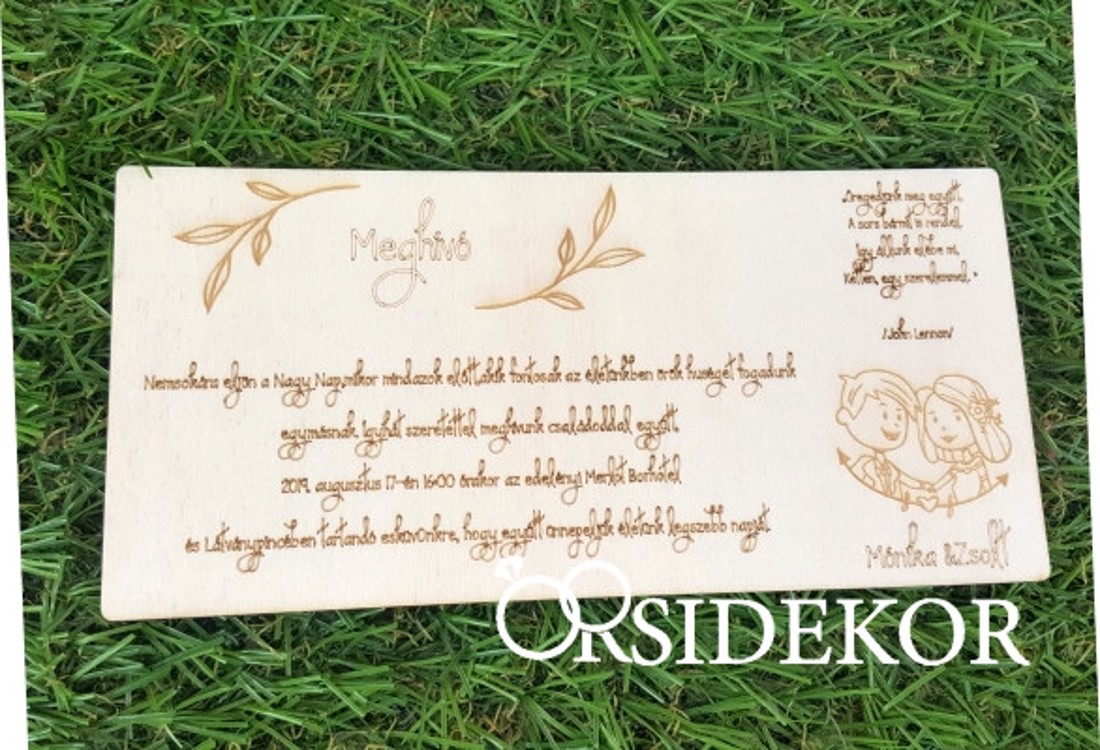 Meghívó
„Öregedjünk meg együtt.
A sors bármit is rendel,
Így állunk elébe mi,
Ketten, egy szerelemmel."
/John Lennon/
Nemsokára eljön a Nagy Nap,mikor mindazok előtt,akik fontosak az életünkben örök hűséget fogadunk
egymásnak. Így hát szeretettel meghívunk családoddal együtt,
2019. augusztus 17-én 16:00 órakor az edelényi Merlót Borhotel
és Látványpincében tartandó esküvőnkre, hogy együtt ünnepeljük életünk legszebb napját.
Mónika &Zsolt
ORSIDEKOR